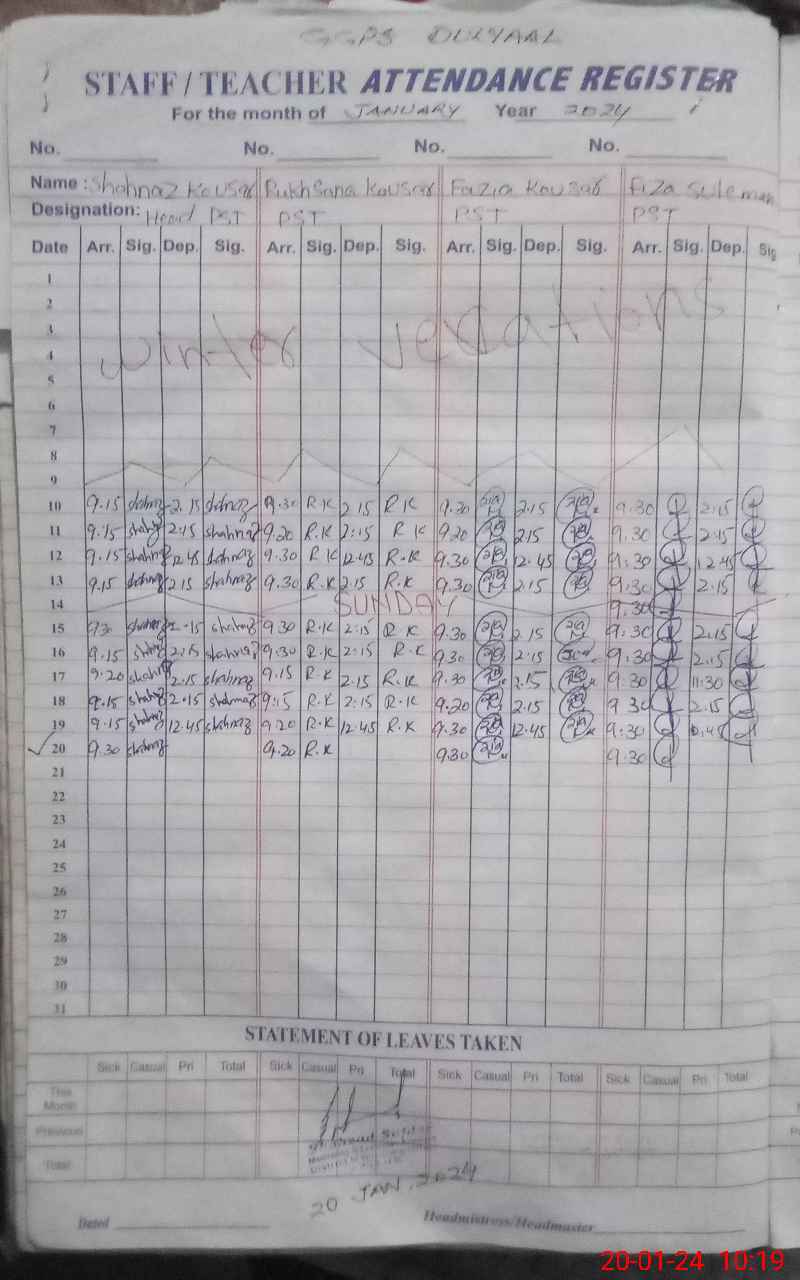 GGPS DULYAAL
STAFF / TEACHER ATTENDANCE REGISTER
For the month of JANUARY Year 2024
No. No. No. No.
Name : Shahnaz Kousar Rukhsana Kousar Fozia Kousar Fiza Suleman
Designation: Head PST PST PST PST
Date Arr. Sig. Dep. Sig. Arr. Sig. Dep. Sig. Arr. Sig. Dep. Sig. Arr. Sig. Dep. Sig
1
2
3
4
winter vecations
5
6
7
8
9
10 9.15 shahnaz 2.15 shahnaz 9.30 R.K 2.15 R K 9.30 2.15 9.30 2.15
11 9.15 shahnaz 2.15 shahnaz 9.20 R.K 2.15 R K 9.20 2.15 9.30 2.15
12 9.15 shahnaz 12.45 shahnaz 9.30 R K 12.45 R.K 9.30 12.45 9.30 12.45
13 9.15 shahnaz 2.15 shahnaz 9.30 R.K 2.15 R.K 9.30 2.15 9.30 2.15
14 SUNDAY 9.30
15 9.30 shahnaz 2.15 shahnaz 9.30 R.K 2.15 R K 9.30 2.15 9.30 2.15
16 9.15 shahnaz 2.15 shahnaz 9.30 R K 2.15 R K 9.30 2.15 9.30 2.15
17 9.20 shahnaz 2.15 shahnaz 9.15 R.K 2.15 R.K 9.30 2.15 9.30 11.30
18 9.15 shahnaz 2.15 shahnaz 9.15 R.K 2.15 R.K 9.20 2.15 9 30 2.15
19 9.15 shahnaz 12.45 shahnaz 9.20 R.K 12.45 R.K 9.30 12.45 9.30
20 9.30 shahnaz 9.20 R.K 9.30 9.30
21
22
23
24
25
26
27
28
29
30
31
STATEMENT OF LEAVES TAKEN
Sick Casual Pri Total Sick Casual Pri Total Sick Casual Pri Total Sick Casual Pri Total
This Month
Previous
Total
20 JAN. 2024
Dated Headmistress/Headmaster
20-01-24 10:19